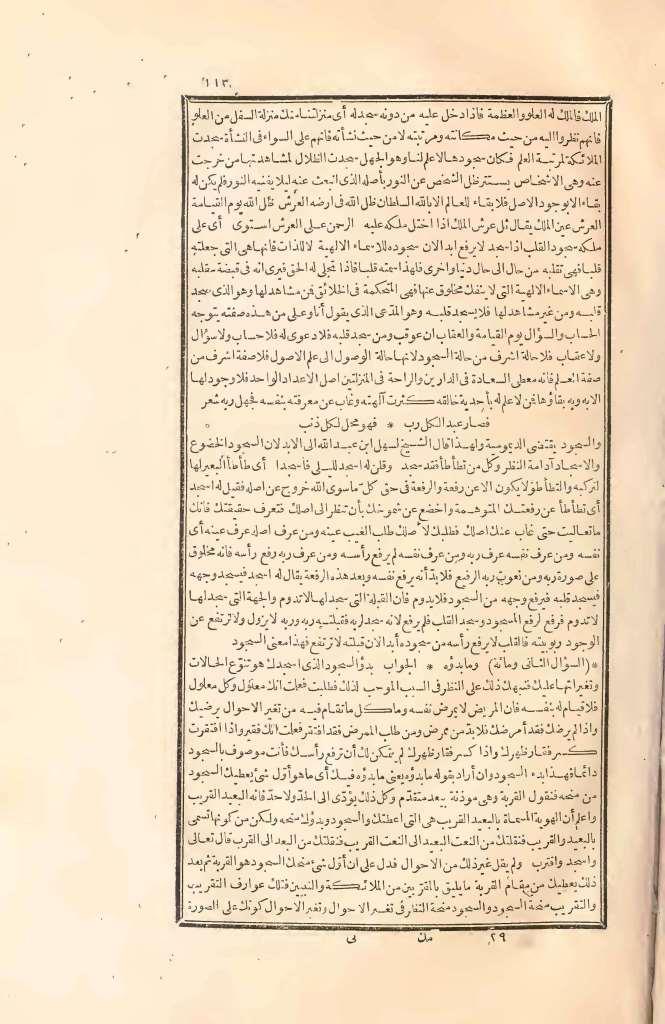 ١١٣
الملك فالملك له العلو والعظمة فاذا دخل عليه من دونه سجد له أى منزلتنا منك منزلة السفل من العلو
فانهم نظروا اليه من حيث مكانته ومرتبته لا من حيث نشأته فانهم على السواء فى النشأة سجدت
الملائكة لمرتبة العلم فكان سجودها لا علم لنا وهو الجهل سجدت الظلال لمشاهدتها من خرجت
عنه وهى الاشخاص يستتر ظل الشخص عن النور بأصله الذى انبعث عنه ليلا يفنيه النور فلم يكن له
بقاء الا بوجود الاصل فلا بقاء للعالم الا بالله السلطان ظل الله فى أرضه العرش ظل الله يوم القيامة
العرش عين الملك يقال ثل عرش الملك اذا اختل ملكه عليه الرحمن على العرش استوى أى على
ملكه سجود القلب اذا سجد لا يرفع ابدا لان سجوده للاسماء الالهية لا للذات فانها هى التى جعلته
قلبا فهى تقلبه من حال الى حال دنيا واخرى فلهذا سمته قلبا فاذا تجلى له الحق فيرى انه فى قبضة مقلبه
وهى الاسماء الالهية التى لا ينفك مخلوق عنها فهى المتحكمة فى الخلائق فمن مشاهد لها وهو الذى سجد
قلبه ومن غير مشاهد لها فلا يسجد قلبه وهو المدعى الذى يقول أنا وعلى من هذه صفته يتوجه
الحساب والسؤال يوم القيامة والعقاب ان عوقب ومن سجد قلبه فلا دعوى له فلا حساب ولا سؤال
ولا عقاب فلا حالة اشرف من حالة السجود لانها حالة الوصول الى علم الاصول فلا صفة اشرف من
صفة العلم فانه معطى السعادة فى الدارين والراحة فى المنزلتين اصل الاعداد الواحد فلا وجود لها
الا به وبه بقاؤها فمن لا علم له بأحدية خالقه كثرت آلهته وغاب عن معرفته بنفسه فجهل ربه شعر
فصار عبد الكل رب * فهو محل لكل ذنب
والسجود يقتضى الديمومة ولهذا قال الشيخ لسهل ابن عبد الله الى الابد لان السجود الخضوع
والاسجاد ادامة النظر وكل من تطأطأ فقد سجد وقلن له اسجد لليلى فاسجدا أى طأطأ البعير لها
لتركبه والتطأطؤ لا يكون الا عن رفعة والرفعة فى حق كل ما سوى الله خروج عن اصله فقيل له اسجد
أى تطأطأ عن رفعتك المتوهمة واخضع عن شموخك بأن تنظر الى اصلك فتعرف حقيقتك فانك
ما تعاليت حتى غاب عنك اصلك فطلبك لاصلك طلب الغيب عينه ومن عرف اصله عرف عينه أى
نفسه ومن عرف نفسه عرف ربه ومن عرف نفسه لم يرفع رأسه ومن عرف ربه رفع رأسه فانه مخلوق
على صورة ربه ومن نعوت ربه الرفيع فلا بد أنه يرفع نفسه وبعد هذه الرفعة يقال له اسجد فيسجد وجهه
فيسجد قلبه فيرفع وجهه من السجود فلا يدوم فان القبلة التى سجد لها لا تدوم والجهة التى سجد لها
لا تدوم فرفع لرفع المسجود وسجد القلب فلم يرفع لانه سجد لربه فقبلته ربه وربه لا يزول ولا ترتفع عن
الوجود ربوبيته فالقلب لا يرفع رأسه من سجوده أبدا لان قبلته لا ترتفع فهذا معنى السجود
*(السؤال الثانى ومائة) وما بدؤه * الجواب بدؤ السجود الذى اسجدك هو تنوع الحالات
وتغيراتها عليك فتنبهك ذلك على النظر فى السبب الموجب لذلك فطلبت فعلمت انك معلول وكل معلول
فلا قيام له بنفسه فان المريض لا يمرض نفسه وما كل ما تقام فيه من تغير الاحوال يرضيك
واذا لم يرضك فقد أمرضك فلا بد من ممرض ومن طلب الممرض فقد افتقر فعلمت انك فقير واذا افتقرت
كسر فقار ظهرك واذا كسر فقار ظهرك لم يتمكن لك أن ترفع رأسك فأنت موصوف بالسجود
دائما فهذا بدء السجود وان أراد بقوله ما بدؤه يعنى ما بدؤه فيك أى ما هو أول شئ يعطيك السجود
من منحه فنقول القربة وهى موذنة ببعد متقدم وكل ذلك يؤدى الى الحد ولا حد فانه البعيد القريب
واعلم أن الهوية المسماة بالبعيد القريب هى التى اعطتك والسجود وبدؤك منحه ولكن من كونها تسمى
بالبعيد والقريب فنقلتك من النعت البعيد الى النعت القريب فنقلتك من البعد الى القرب قال تعالى
واسجد واقترب ولم يقل غير ذلك من الاحوال فدل على ان أول شئ منحك السجود هو القربة ثم بعد
ذلك يعطيك من مقام القربة ما يليق بالمقربين من الملائكة والنبيين فتلك عوارف التقريب
والتقريب منحة السجود والسجود منحة النظر فى تغير الاحوال وتغير الاحوال كونك على الصورة
٢٩ مك نى